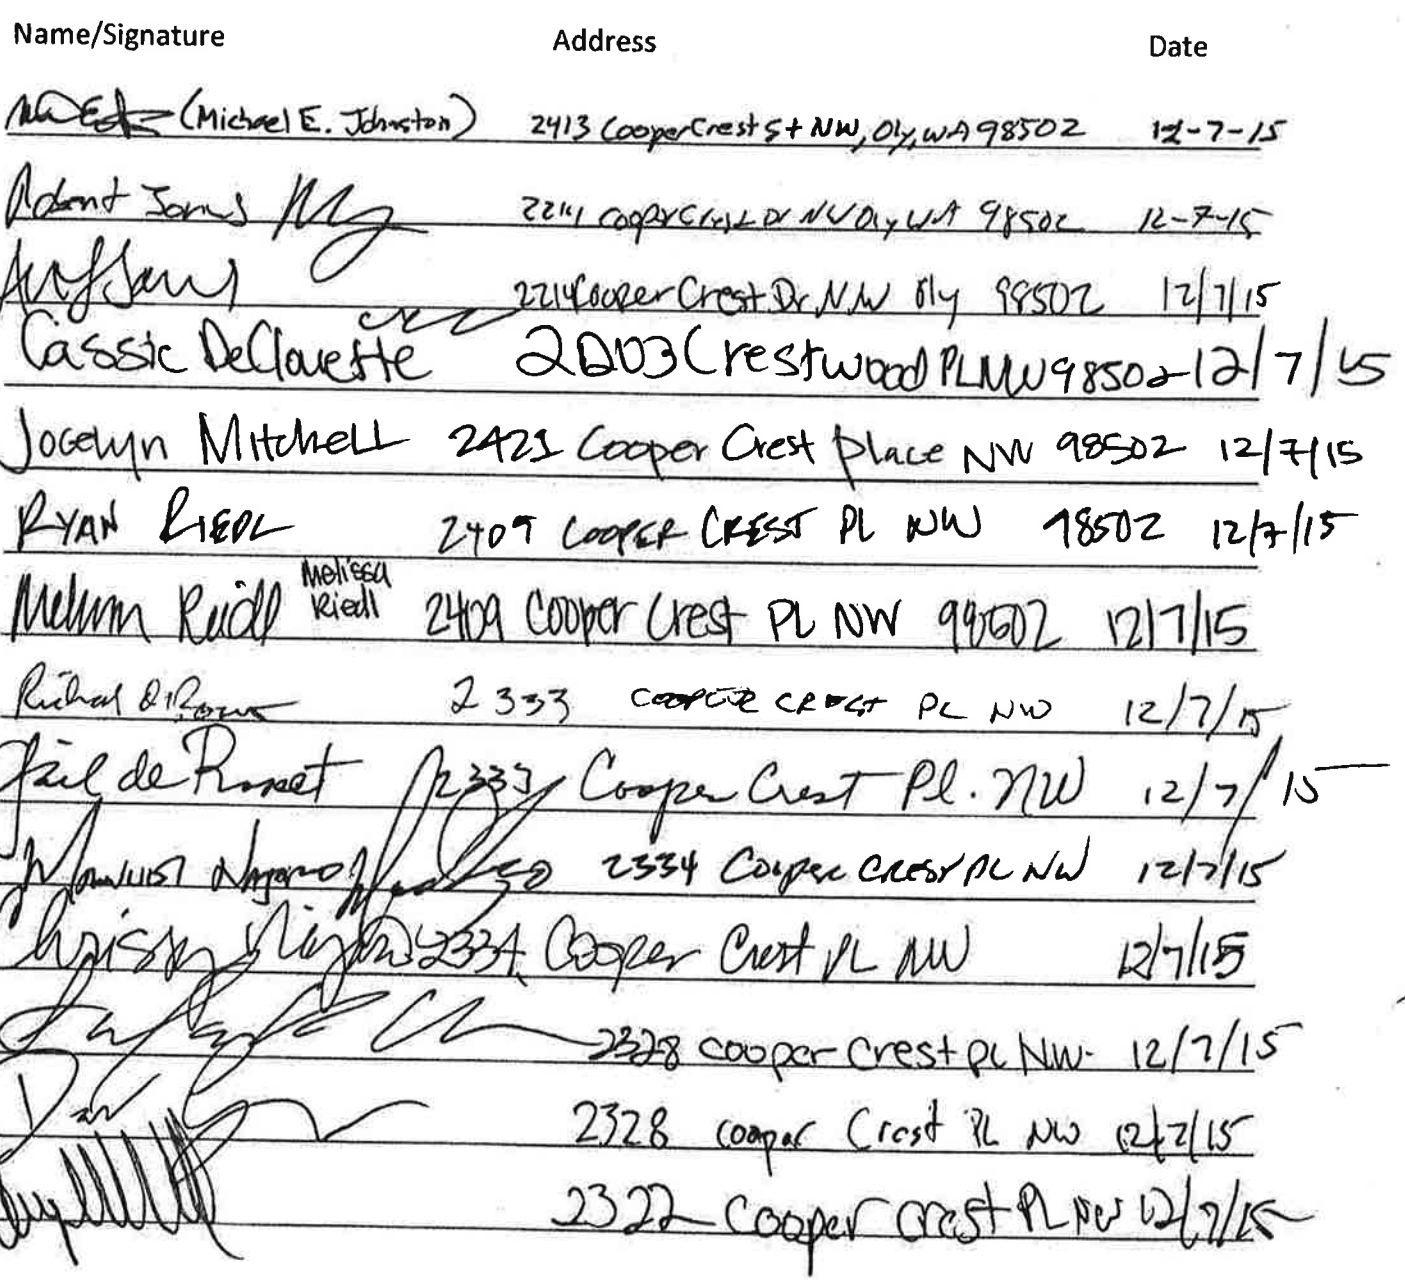 Name/Signature Address Date
(Michael E. Johnston) 2413 Cooper Crest St NW, Oly, WA 98502 12-7-15
Robert Jones Cooper Crest Dr NW Oly WA 98502 12-7-15
2214 Cooper Crest Dr. NW Oly 98502 12/7/15
Cassie 2003 Crestwood PL NW 98502 12/7/15
Jocelyn Mitchell 2421 Cooper Crest Place NW 98502 12/7/15
RYAN RIEDL 2409 COOPER CREST PL NW 98502 12/7/15
Melissa Riedl 2409 Cooper Crest PL NW 98502 12/7/15
Richard 2333 COOPER CREST PL NW 12/7/15
Gail de 2333 Cooper Crest Pl. NW 12/7/15
2334 Cooper CREST PL NW 12/7/15
Chrissy 2334 Cooper Crest PL NW 12/7/15
2328 Cooper Crest PL NW. 12/7/15
2328 Cooper Crest PL NW 12/7/15
2322 Cooper Crest PL NW 12/7/15